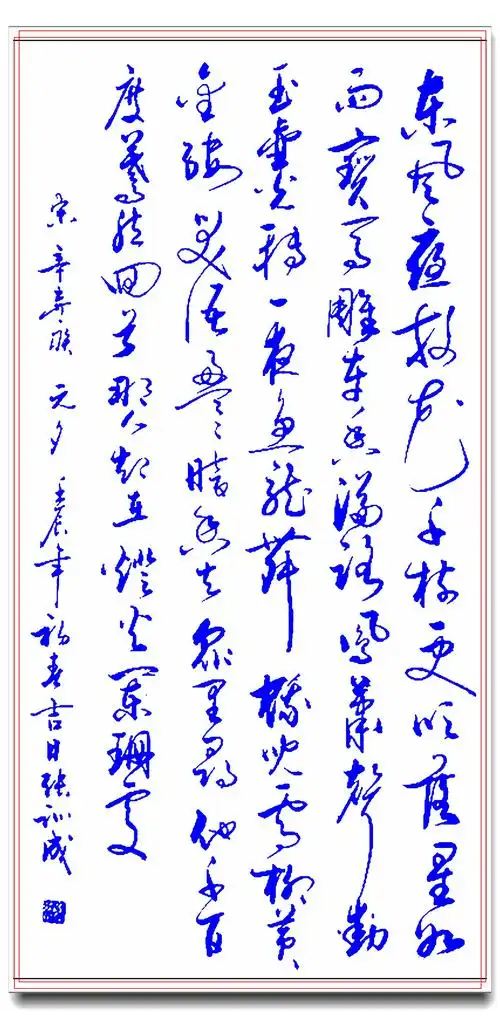 東風夜放花千树更吹落星如
雨寶馬雕車香滿路鳳簫聲動
玉壺光轉一夜魚龍舞蛾兒雪柳黃
金縷笑語盈盈暗香去眾里尋他千百
度驀然回首那人却在燈火闌珊處
宋 辛弃疾 元夕 壬辰年初春吉日張訓成